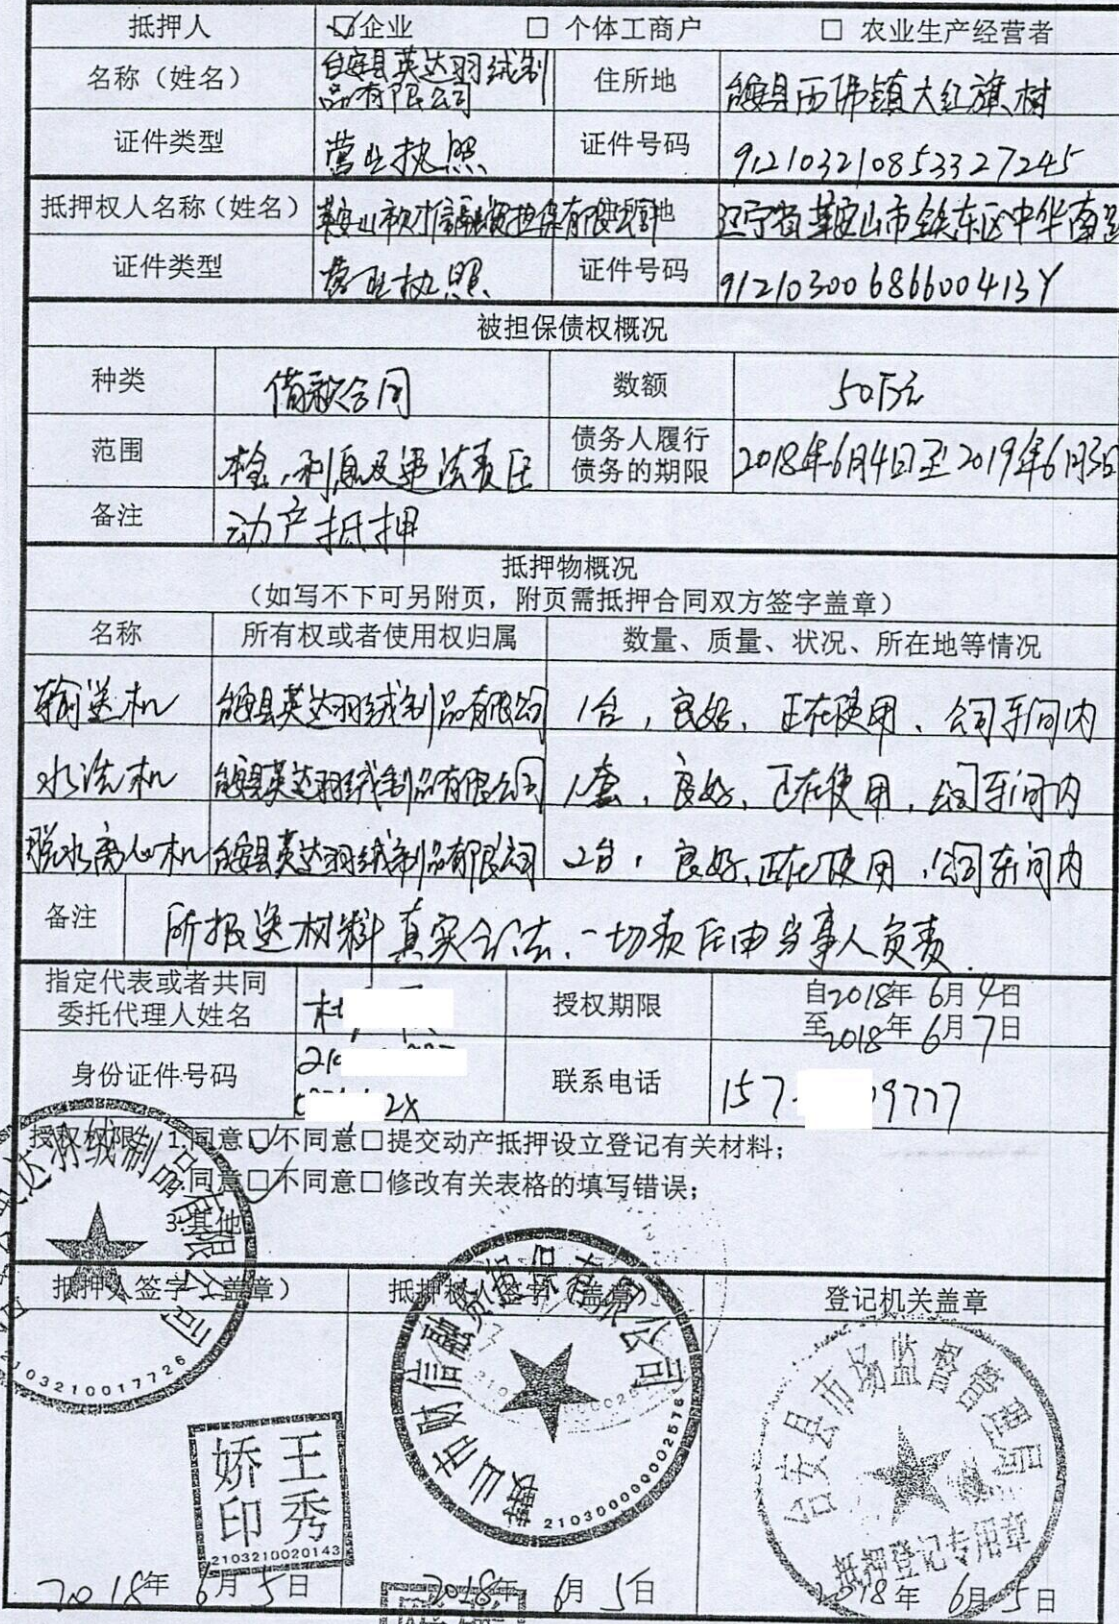 抵押人 ☑企业 □ 个体工商户 □ 农业生产经营者
名称（姓名） 台安县英达羽绒制品有限公司 住所地 台安县西佛镇大红旗村
证件类型 营业执照 证件号码 912103210853327245
抵押权人名称（姓名） 鞍山市财信融资担保有限公司 住所地 辽宁省鞍山市铁东区中华南
证件类型 营业执照 证件号码 91210300686600413Y
被担保债权概况
种类 借款合同 数额 50万元
范围 本金、利息及违法责任 债务人履行债务的期限 2018年6月4日至2019年6月3日
备注 动产抵押
抵押物概况
（如写不下可另附页，附页需抵押合同双方签字盖章）
名称 所有权或者使用权归属 数量、质量、状况、所在地等情况
输送机 台安县英达羽绒制品有限公司 1台，良好，正在使用、公司车间内
水洗机 台安县英达羽绒制品有限公司 1套，良好，正在使用，公司车间内
脱水离心机 台安县英达羽绒制品有限公司 2台，良好、正在使用，公司车间内
备注 所报送材料真实合法、一切责任由当事人负责.
指定代表或者共同委托代理人姓名 杜 授权期限 自2018年6月4日
至2018年6月7日
身份证件号码 210 2X 联系电话 157 9777
授权权限：1.同意☑不同意□提交动产抵押设立登记有关材料；
同意☑不同意□修改有关表格的填写错误；
3.其他
抵押人签字（盖章） 抵押权人签字（盖章） 登记机关盖章
达羽绒制品有限公司
03210017726
鞍山市财信融资担保有限公司
2103000000002576
台安县市场监督管理局
抵押登记专用章
王秀娇印
2103210020143
2018年6月5日 2018年6月5日 2018年6月5日